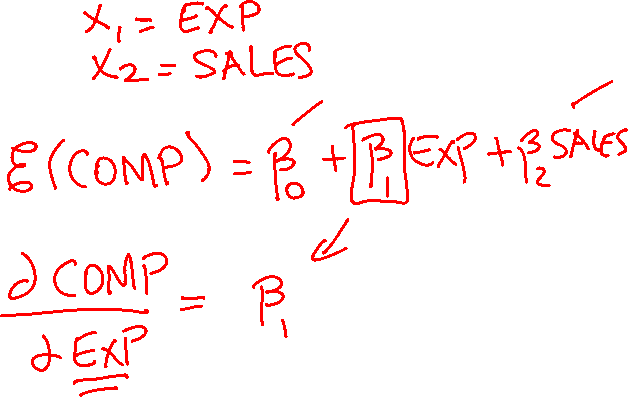 X₁ = EXP
X₂ = SALES
E(COMP) = β₀ + β₁ EXP + β₂ SALES
∂ COMP
∂ EXP = β₁